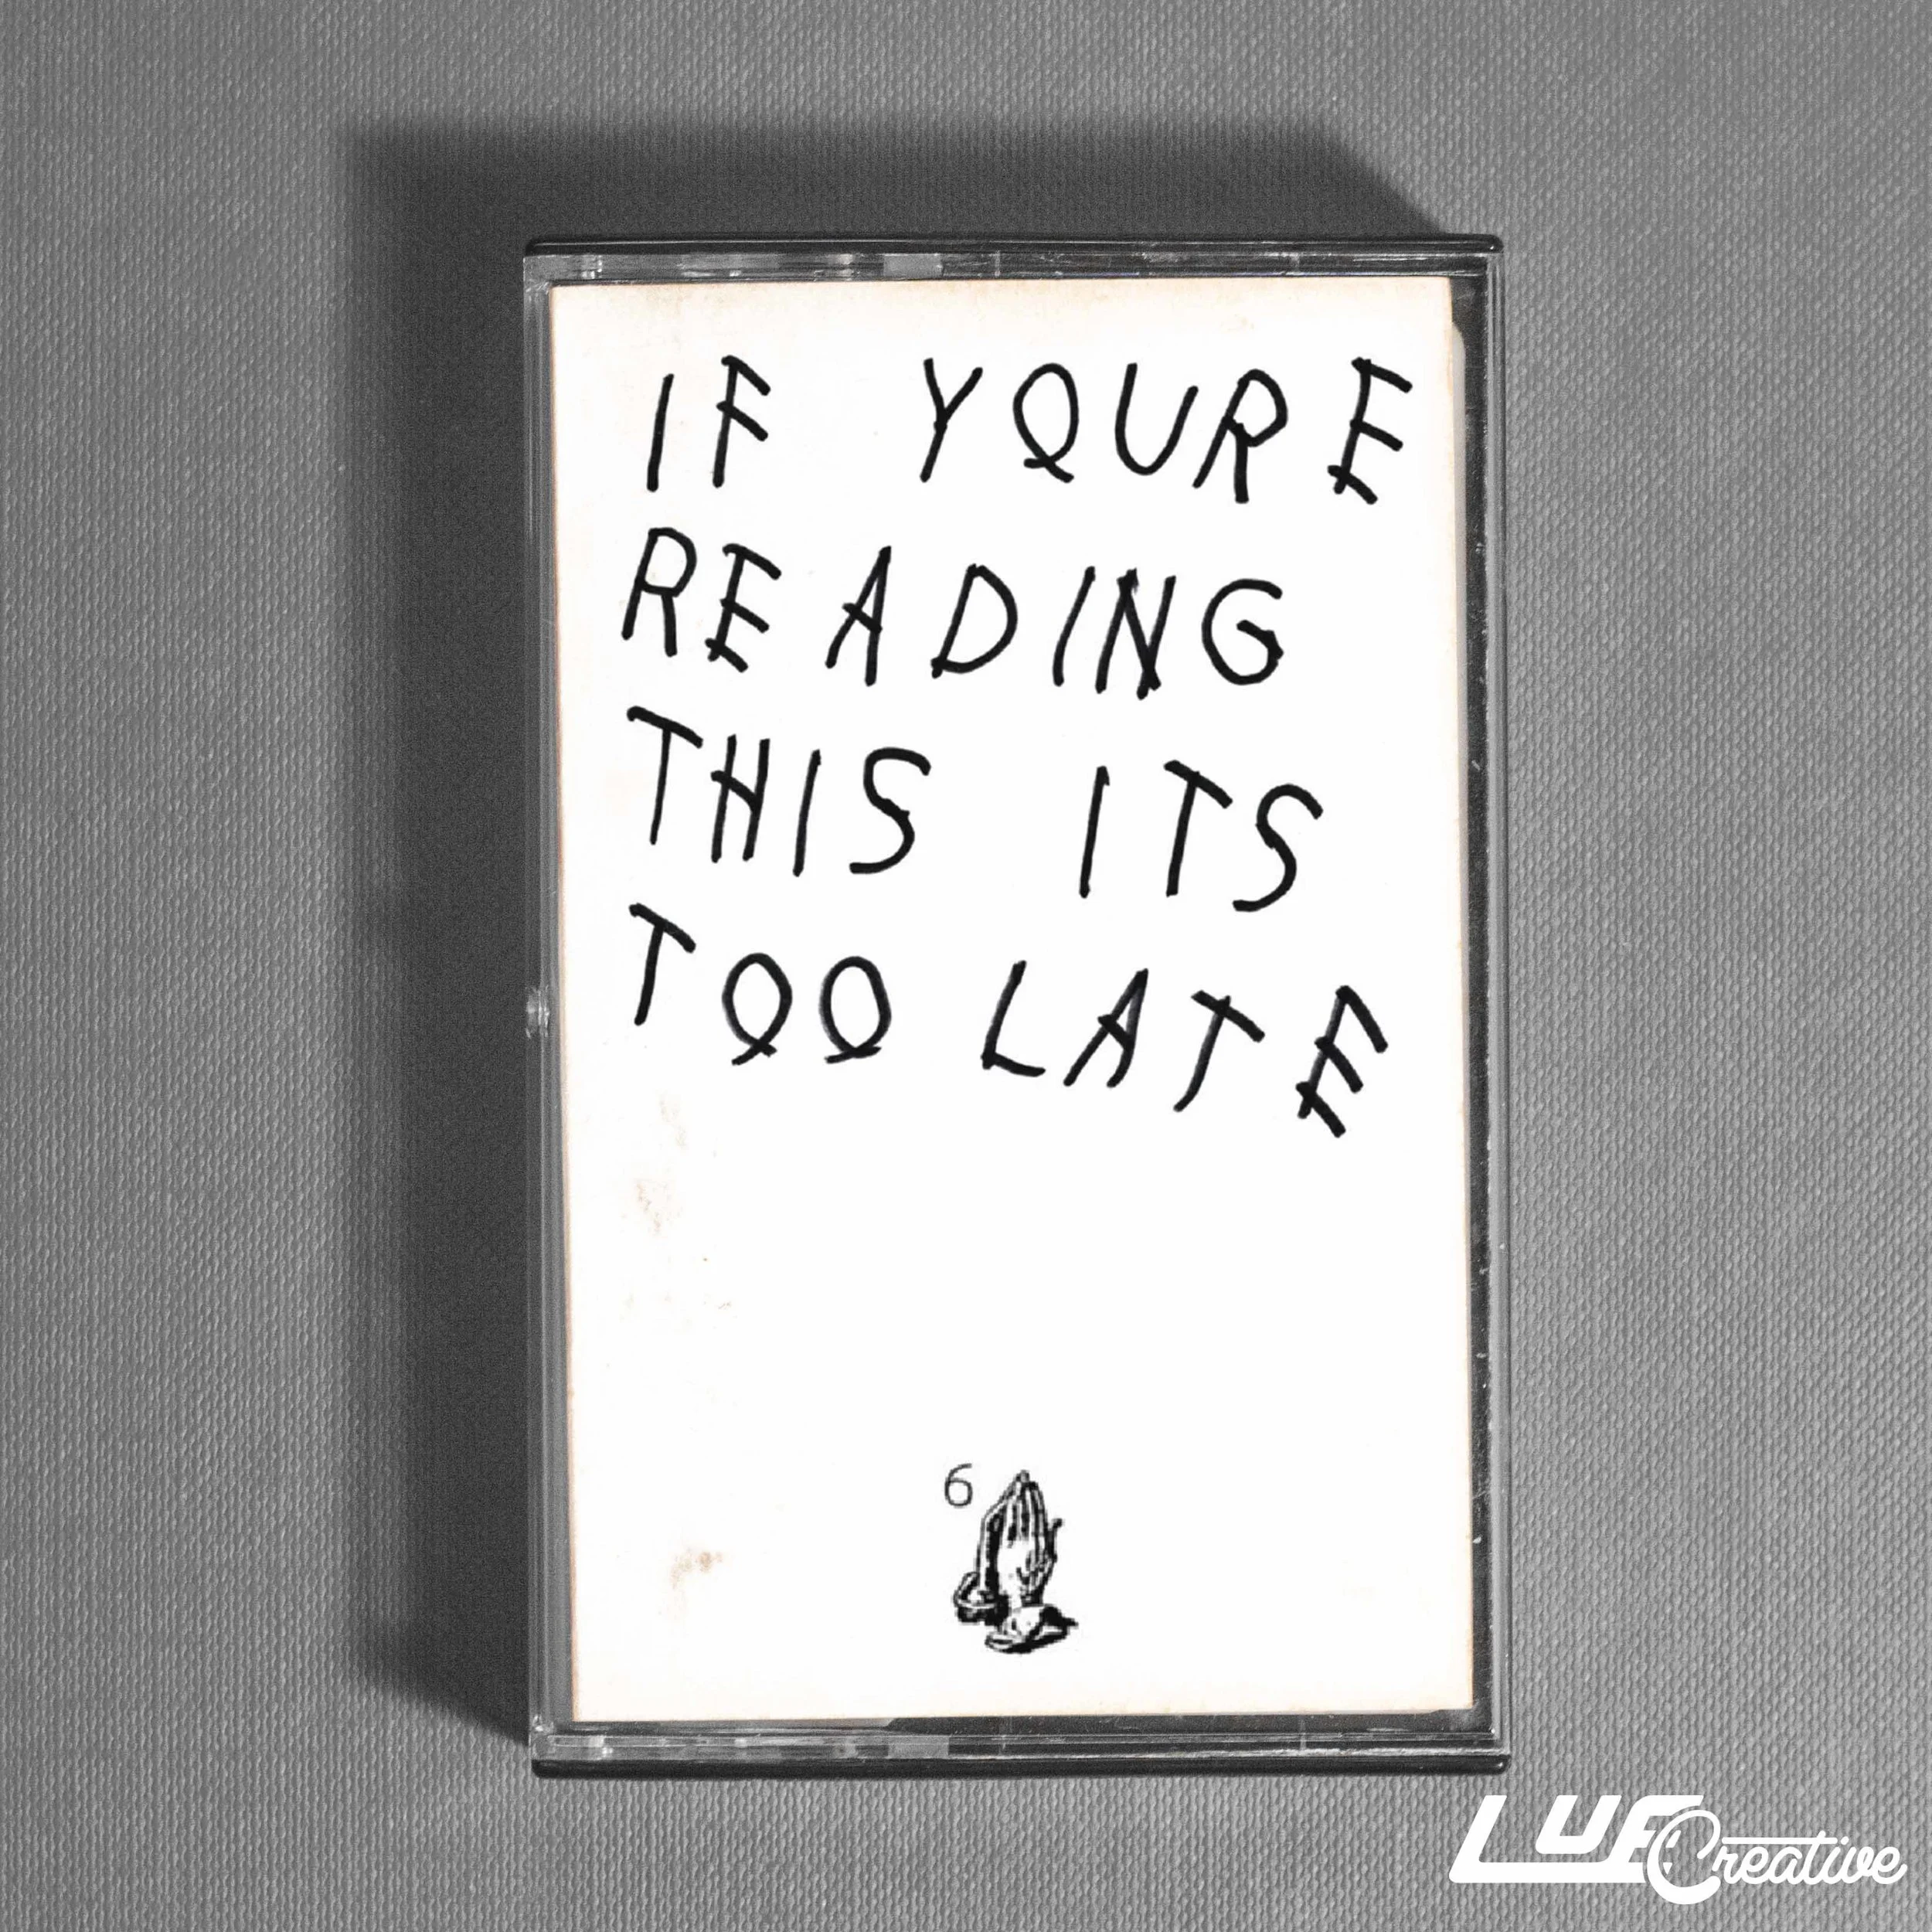 IF YOURE
READING
THIS ITS
TOO LATE
6
LUF Creative